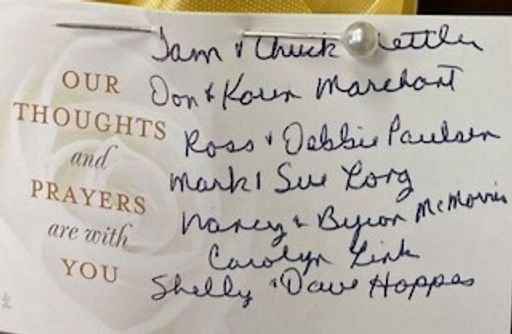 OUR
THOUGHTS
and
PRAYERS
are with
YOU
& Chuck
Don & Karen Marchart
Ross & Debbie Paulsen
Mark & Sue Long
Nancy & Byron McMorris
Carolyn Link
Shelly & Dave Hoppes